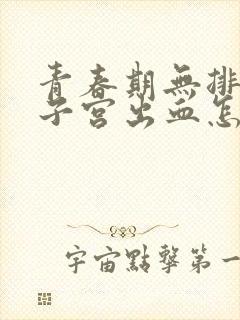 青春期無排
子宮出血怎
宇宙點擊第一